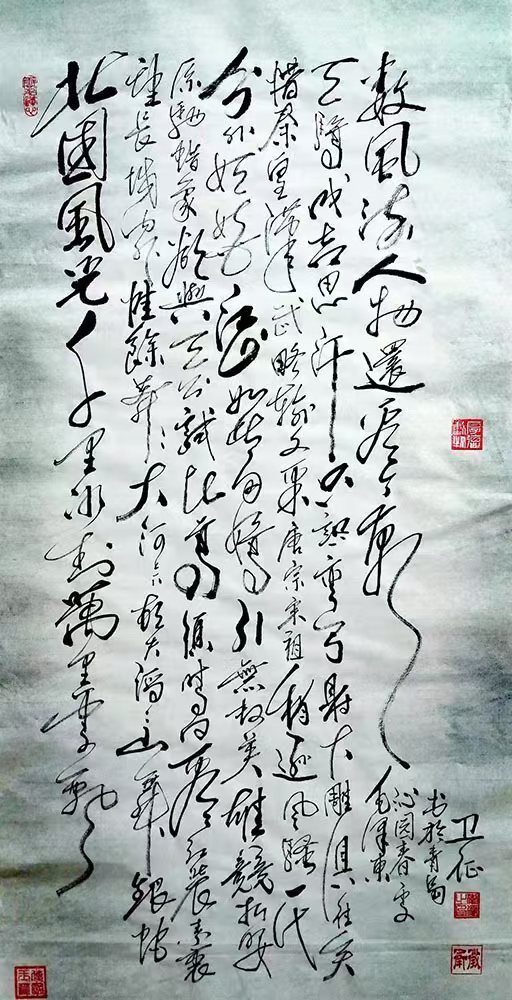 北國風光千里冰封萬里雪飄
望長城內外惟餘莽〻大河上下頓失滔〻山舞銀蛇
原馳蠟象欲與天公試比高須晴日看紅裝素裹
分外妖嬈江山如此多嬌引無數英雄競折腰
惜秦皇漢武略輸文采唐宗宋祖稍遜風騷一代
天驕成吉思汗只識彎弓射大雕俱往矣
數風流人物還看今朝
毛澤東
沁园春雪
书於青島
卫征